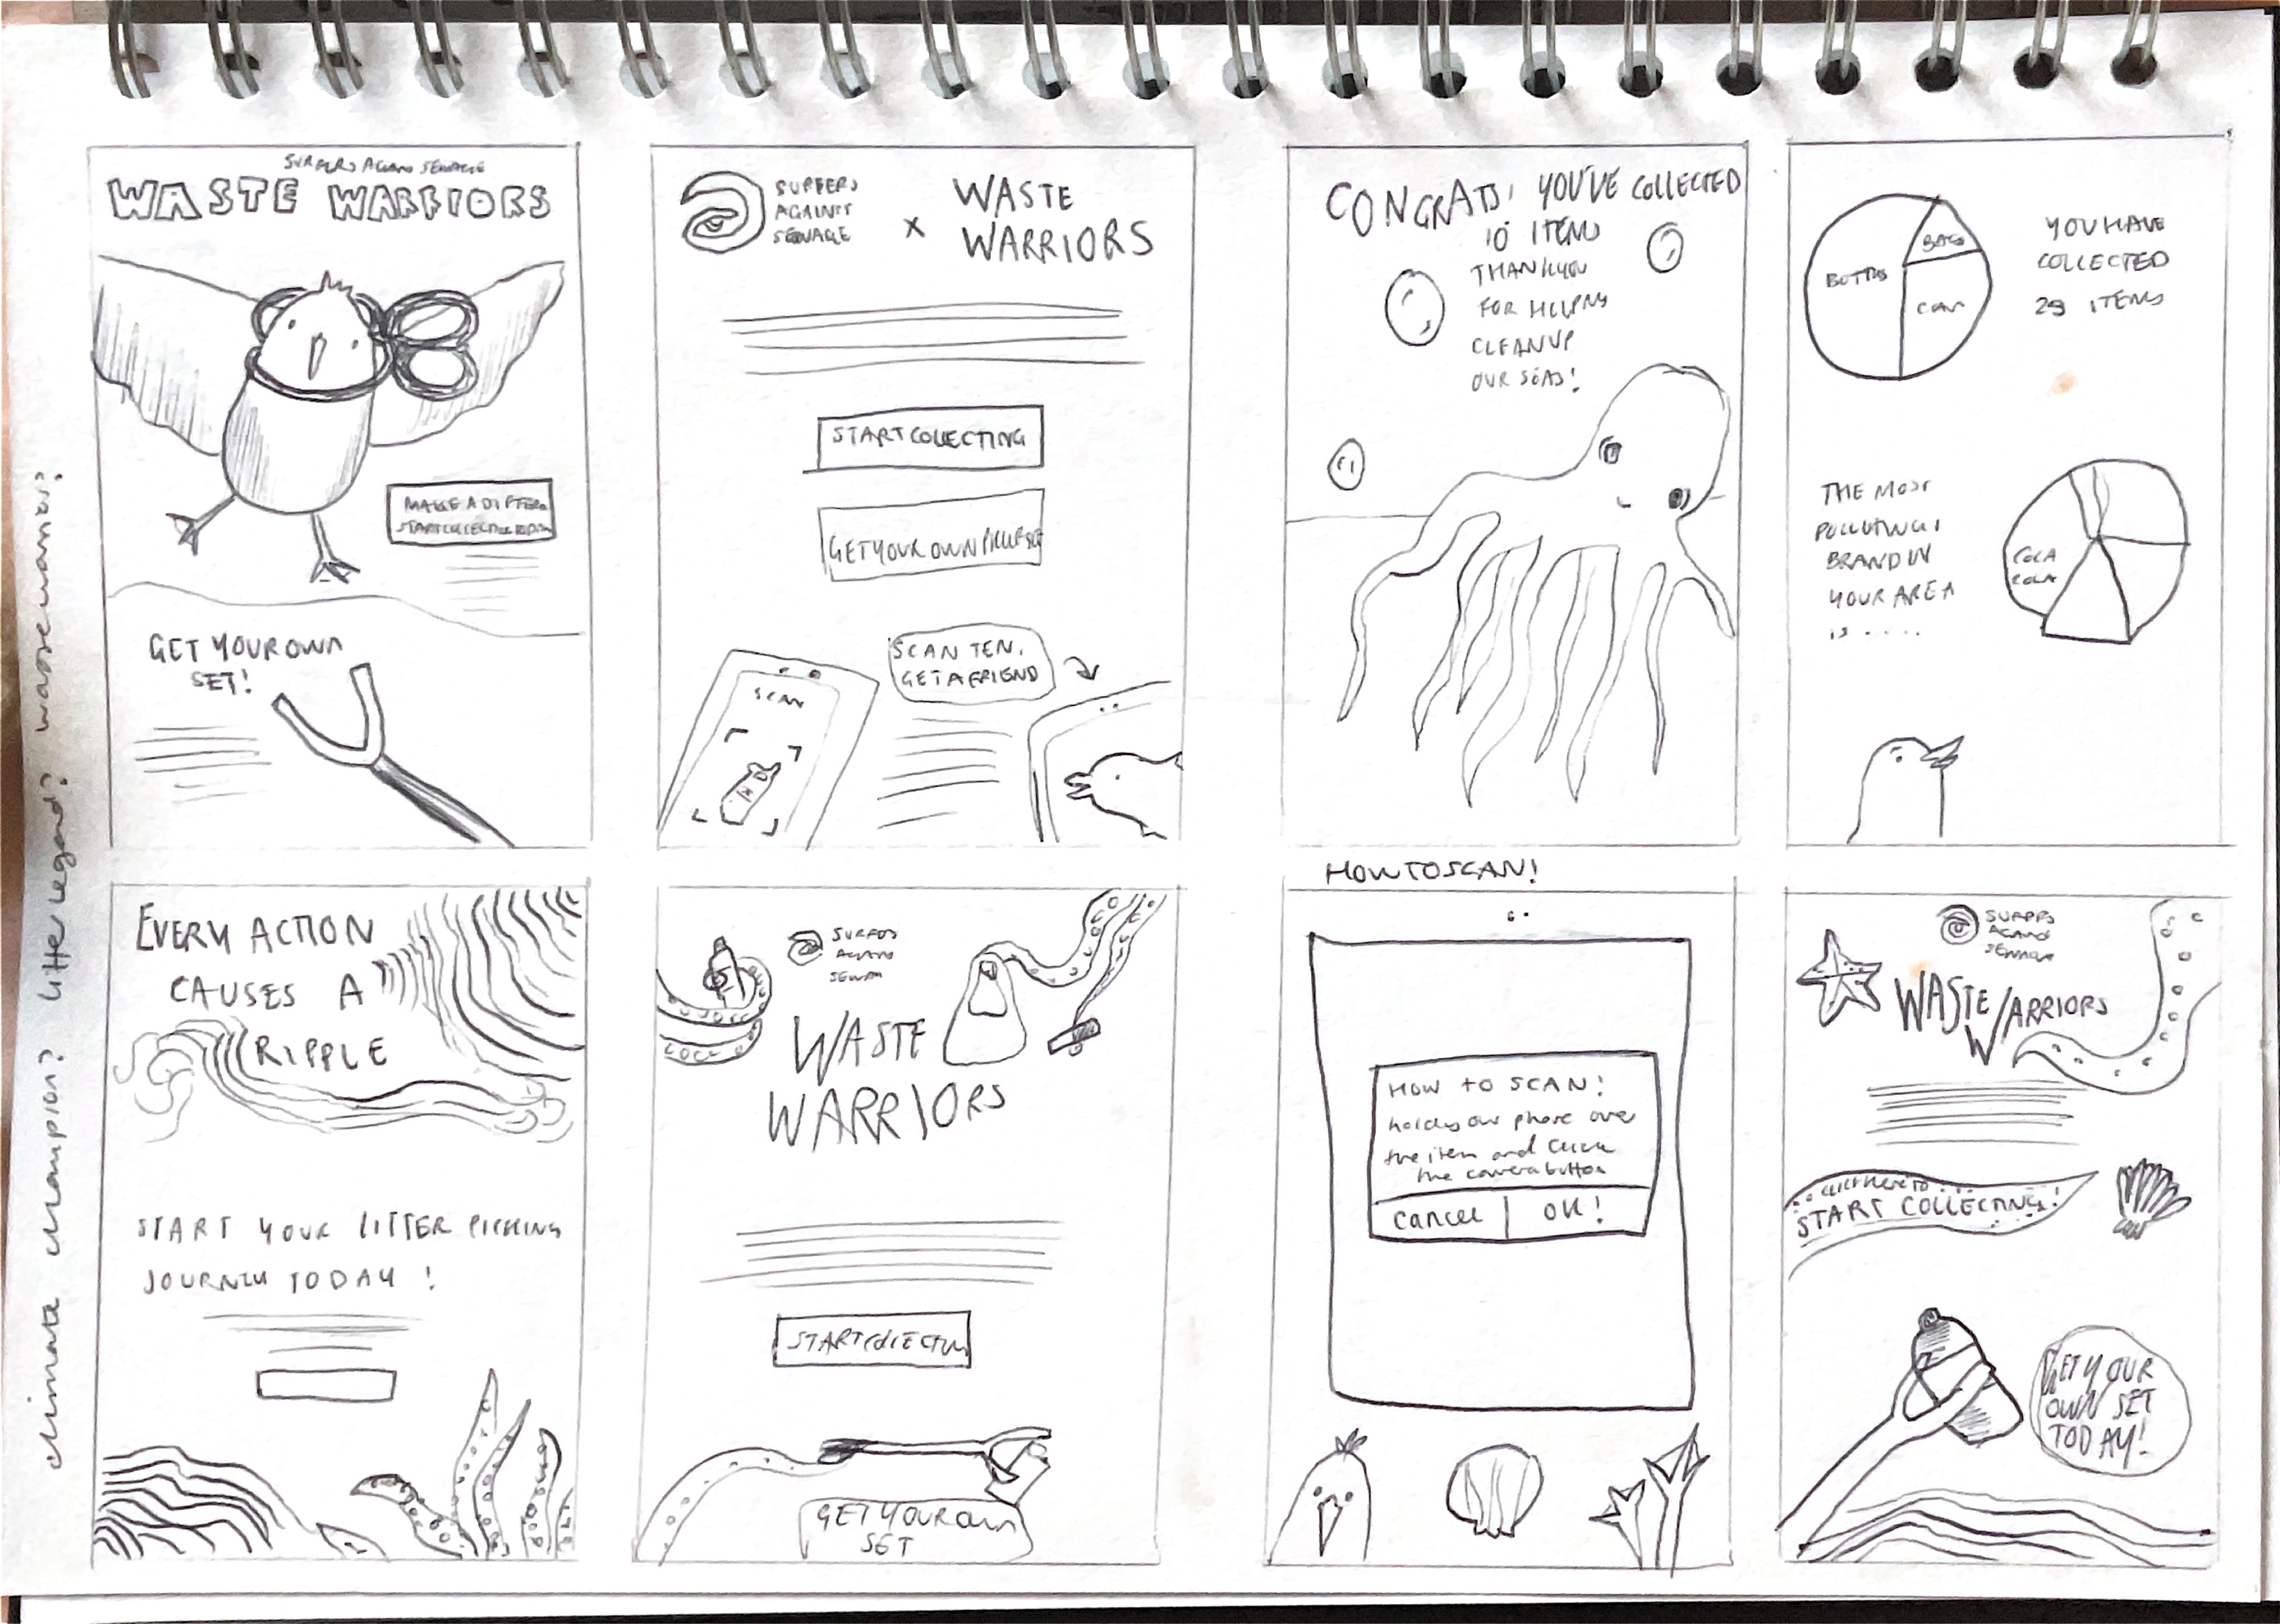 SURFERS AGAINST SEWAGE
WASTE WARRIORS
MAKE A DIFFER
START COLLECTING
GET YOUR OWN
SET!
SURFERS
AGAINST
SEWAGE
X
WASTE
WARRIORS
START COLLECTING
GET YOUR OWN
SCAN TEN,
GET A FRIEND
SCAN
CONGRATS! YOU'VE COLLECTED
10 ITEMS
THANKYOU
FOR HELPING
CLEAN UP
OUR SEAS!
BAGS
BOTTLES
CAN
YOU HAVE
COLLECTED
29 ITEMS
THE MOST
POLLUTING
BRAND IN
YOUR AREA
is ....
COLA
COLA
EVERY ACTION
CAUSES A
RIPPLE
START YOUR LITTER PICKING
JOURNEY TODAY!
SURFERS
AGAINST
SEWAGE
WASTE
WARRIORS
START COLLECTING
GET YOUR OWN
SET
HOW TO SCAN!
HOW TO SCAN!
hold your phone over
the item and click
the camera button
cancel
OK!
SURFERS
AGAINST
SEWAGE
WASTE WARRIORS
CLICK HERE TO
START COLLECTING!
GET YOUR
OWN SET
TODAY!
climate champion? litter legend? waste warriors?